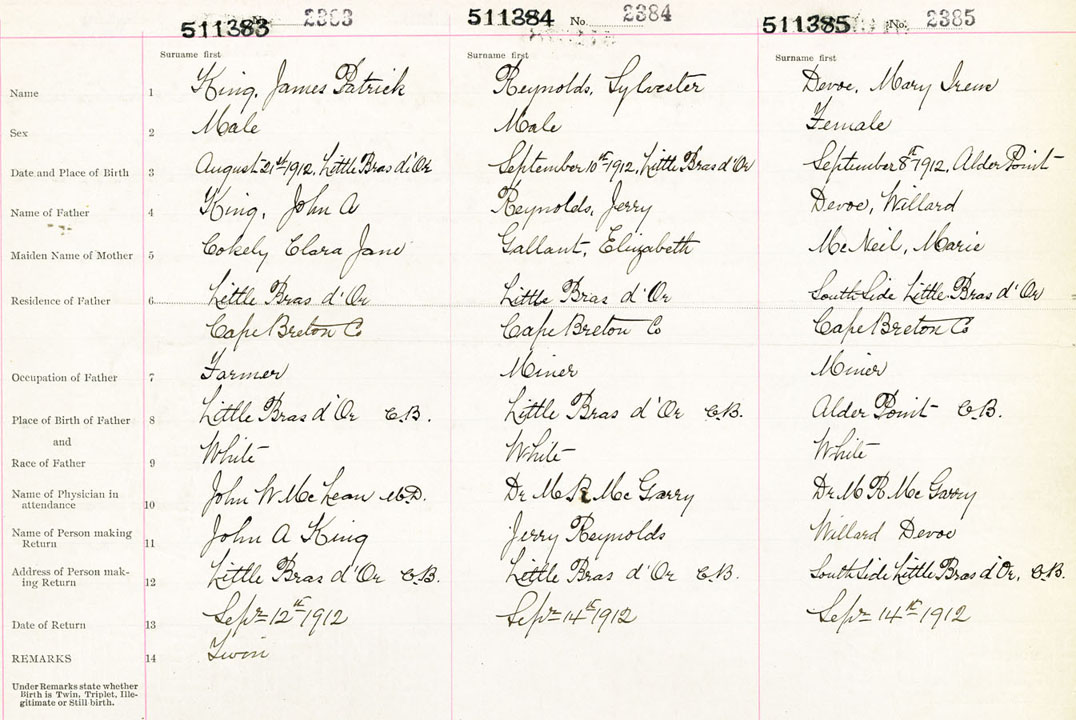 511383 2383 511384 No. 2384 511385 No. 2385
Surname first Surname first Surname first
Name 1 King, James Patrick Reynolds, Sylvester Devoe, Mary Irene
Sex 2 Male Male Female
Date and Place of Birth 3 August 21st 1912, Little Bras d'Or September 10th 1912, Little Bras d'Or September 8th 1912, Alder Point
Name of Father 4 King, John A Reynolds, Jerry Devoe, Willard
Maiden Name of Mother 5 Cokely Clara Jane Gallant, Elizabeth McNeil, Marie
Residence of Father 6 Little Bras d'Or Little Bras d'Or South Side Little Bras d'Or
Cape Breton Co Cape Breton Co Cape Breton Co
Occupation of Father 7 Farmer Miner Miner
Place of Birth of Father 8 Little Bras d'Or C.B. Little Bras d'Or C.B. Alder Point C.B.
and
Race of Father 9 White White White
Name of Physician in
attendance 10 John W McLean M.D. Dr M R McGarry Dr M R McGarry
Name of Person making
Return 11 John A King Jerry Reynolds Willard Devoe
Address of Person mak-
ing Return 12 Little Bras d'Or C.B. Little Bras d'Or C.B. South Side Little Bras d'Or, C.B.
Date of Return 13 Sepr 12th 1912 Sepr 14th 1912 Sepr 14th 1912
REMARKS 14 Twin
Under Remarks state whether
Birth is Twin, Triplet, Ille-
gitimate or Still birth.